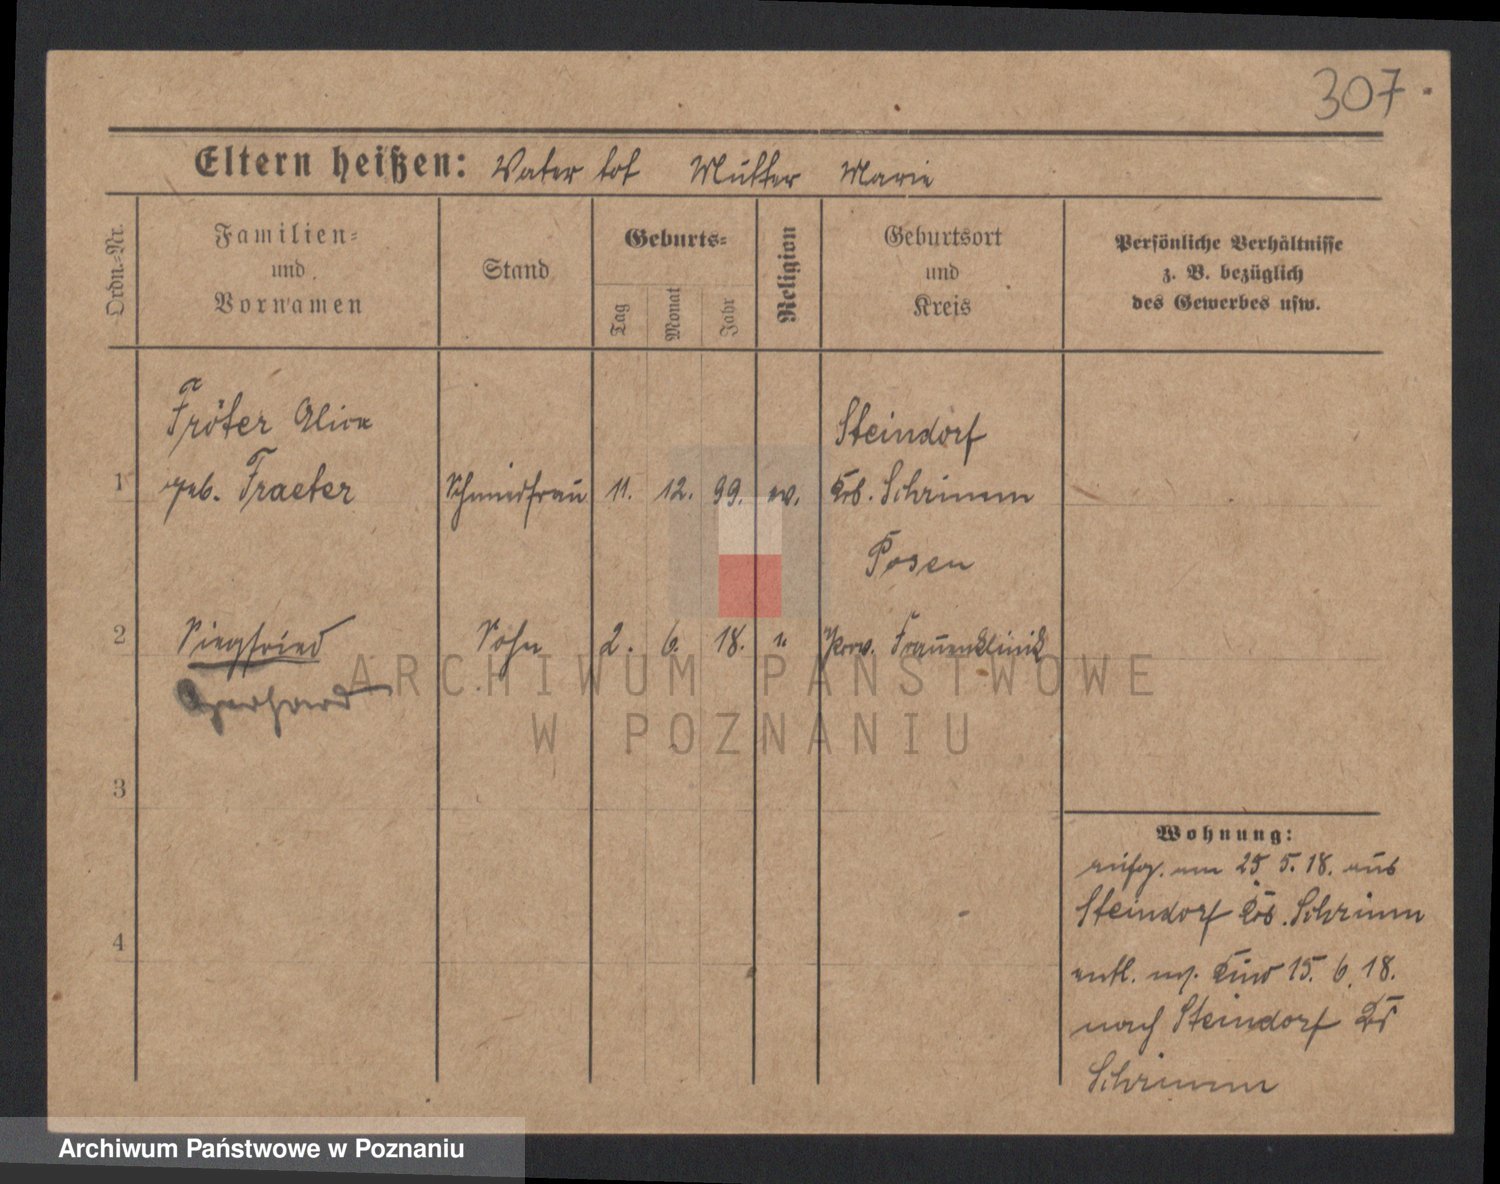 307.
Eltern heißen: Vater tot Mutter Marie
Ordn.=Nr.
Familien=
und
Vornamen
Stand
Geburts=
Tag
Monat
Jahr
Religion
Geburtsort
und
Kreis
Persönliche Verhältnisse
z. B. bezüglich
des Gewerbes usw.
Fröter Alice Steindorf
1 geb. Fraeter Schmiedfrau 11. 12. 99. ev. Krs. Schrimm
Posen
2 Siegfried Sohn 2. 6. 18. " Prov. Frauenklinik
Gerhard
ARCHIWUM PAŃSTWOWE
W POZNANIU
3
4
Wohnung:
aufg. am 25 5. 18. aus
Steindorf Krs. Schrimm
entl. m. Kind 15. 6. 18.
nach Steindorf Krs
Schrimm
Archiwum Państwowe w Poznaniu